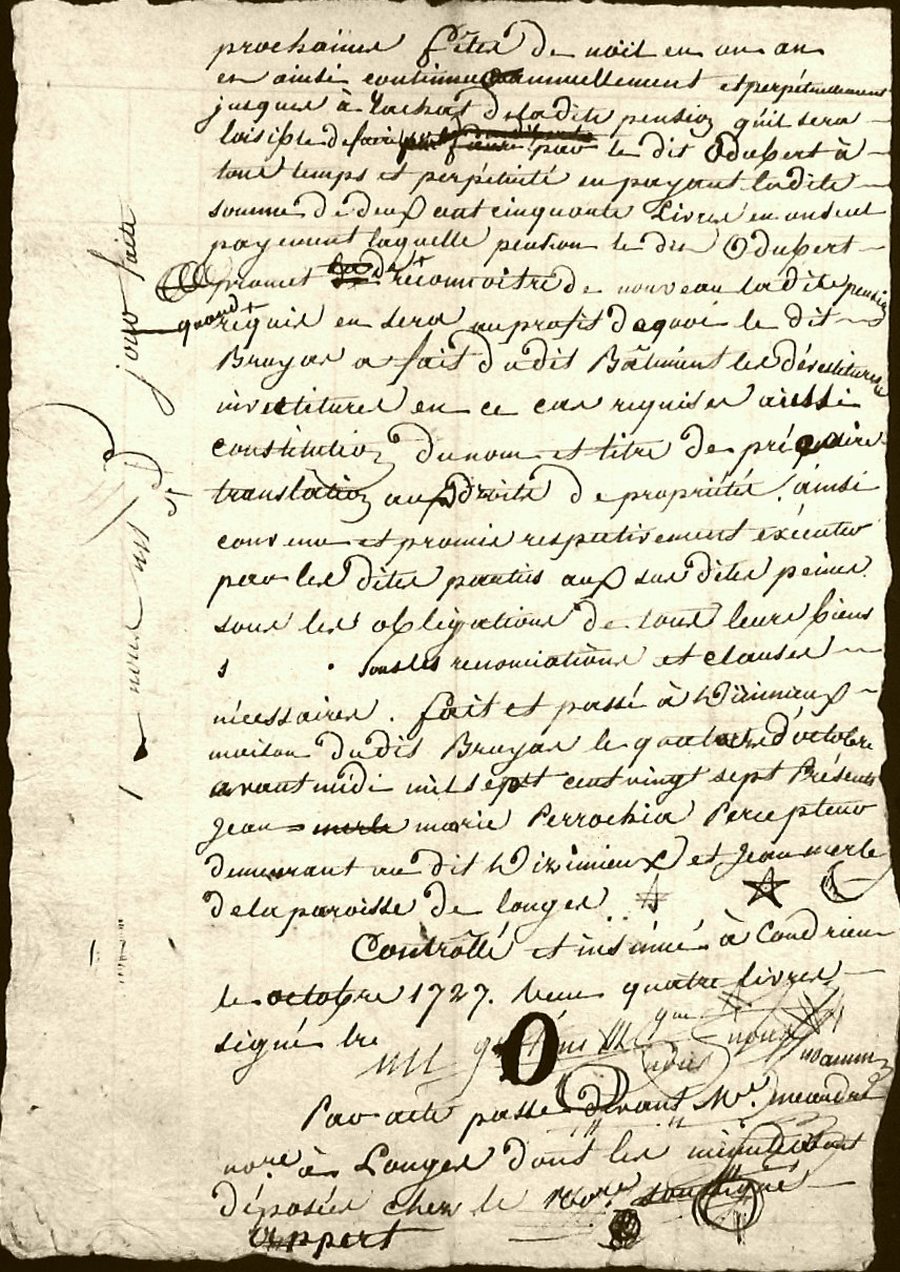 prochaines fêtes de noël en un an
et ainsi continuer annuellement et perpétuellement
jusques à rachat de ladite pension qu'il sera
loisible de faire par le dit Odubert à
tous temps et perpétuité en payant ladite
somme de deux cent cinquante Livres en un seul
payement laquelle pension le dit Odubert
promet de + reconnoitre de nouveau la dite pension
quand +
requis en sera au profit de quoi le dit
Bruyas a fait dudit Bâtiment les dévestitures
investitures en ce cas requises aussi
constitution du nom et titre de précaire
translâtion aux droits de propriété, ainsi
convenu et promis respectivement exécuter
par les dites parties aux sus dites peines
sous les obligations de tous leurs biens
s sous les renonciations et clauses
nécessaires. fait et passé à
maison dudit Bruyas le quatre d'octobre
avant midi mil sept cent vingt sept Présents
Jean = merle marie Perrochia Percepteur
demeurant au dit et Jean merle
de la paroisse de longes
Contrôllé et insinué à Condrieu
le octobre 1727. Reçu quatre livres
signé
que
nous
Par acte passé devant Mr. meandre
nore. à Longes dont les minutes sont
déposées chez le nore. soussigné
appert
jour faite
nous